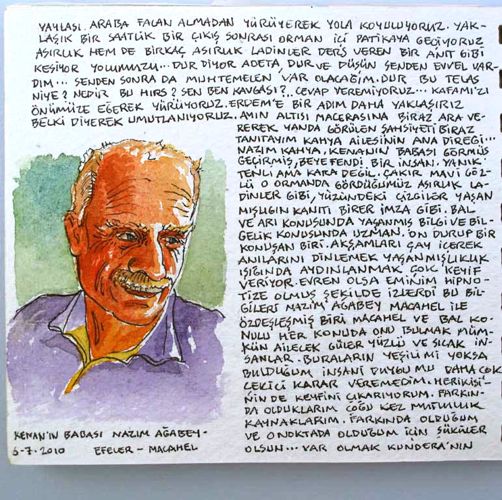 YAYLASI. ARABA FALAN ALMADAN YÜRÜYEREK YOLA KOYULUYORUZ. YAK-
LAŞIK BİR SAATLİK BİR ÇIKIŞ SONRASI ORMAN İÇİ PATİKAYA GEÇİYORUZ
ASIRLIK HEM DE BİRKAÇ ASIRLIK LADİNLER DERS VEREN BİR ANIT GİBİ
KESİYOR YOLUMUZU... DUR DİYOR ADETA, DUR VE DÜŞÜN SENDEN EVVEL VAR-
DIM... SENDEN SONRA DA MUHTEMELEN VAR OLACAĞIM. DUR BU TELAŞ
NİYE? NEDİR BU HIRS? SEN BEN KAVGASI?.. CEVAP VEREMİYORUZ... KAFAMIZI
ÖNÜMÜZE EĞEREK YÜRÜYORUZ. ERDEM'E BİR ADIM DAHA YAKLAŞIRIZ
BELKİ DİYEREK UMUTLANIYORUZ. AYIN ALTISI MACERASINA BİRAZ ARA VE-
REREK YANDA GÖRÜLEN ŞAHSİYETİ BİRAZ
TANITAYIM KAHYA AİLESİNİN ANA DİREĞİ...
NAZIM KAHYA. KENAN'IN BABASI GÖRMÜŞ
GEÇİRMİŞ, BEYEFENDİ BİR İNSAN. YANIK
TENLİ AMA KARA DEĞİL. ÇAKIR MAVİ GÖZ-
LÜ O ORMANDA GÖRDÜĞÜMÜZ ASIRLIK LA-
DİNLER GİBİ, YÜZÜNDEKİ ÇİZGİLER YAŞAN
MIŞLIĞIN KANITI BİRER İMZA GİBİ. BAL
VE ARI KONUSUNDA YAŞANMIŞ BİLGİ VE BİL-
GELİK KONUSUNDA UZMAN. ÖN DURUP BİR
KONUŞAN BİRİ. AKŞAMLARI ÇAY İÇEREK
ANILARINI DİNLEMEK YAŞANMIŞLIK
IŞIĞINDA AYDINLANMAK ÇOK KEYİF
VERİYOR. EVREN OLSA EMİNİM HİPNO-
TİZE OLMUŞ ŞEKİLDE İZLERDİ BU BİL-
GİLERİ NAZIM AĞABEY MACAHEL İLE
ÖZDEŞLEŞMİŞ BİRİ MACAHEL VE BAL KO-
NULU HER KONUDA ONU BULMAK MÜM-
KÜN AİLECEK GÜLER YÜZLÜ VE SICAK İN-
SANLAR. BURALARIN YEŞİLİ Mİ YOKSA
BULDUĞUM İNSANİ DUYGU MU DAHA ÇOK
ÇEKİCİ KARAR VEREMEDİM. HERİKİSİ-
NİN DE KEYFİNİ ÇIKARIYORUM. FARKIN-
DA OLDUKLARIM ÇOĞU KEZ MUTLULUK
KAYNAKLARIM. FARKINDA OLDUĞUM
VE O NOKTADA OLDUĞUM İÇİN ŞÜKÜRLER
OLSUN... VAR OLMAK KUNDERA'NIN
KENAN'IN BABASI NAZIM AĞABEY-
6-7. 2010 EFELER - MACAHEL